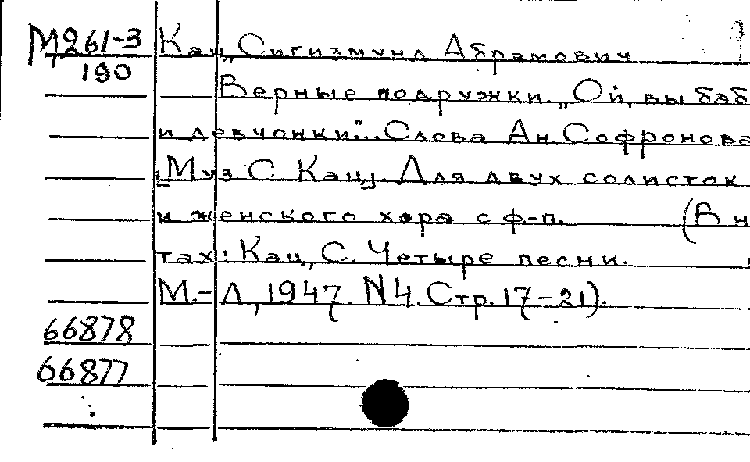 М261-3 Кац, Сигизмунд Абрамович
190
Верные подружки. „Ой, вы баб
и девчонки"... Слова Ан. Софронова
[Муз. С. Кац]. Для двух солисток
и женского хора с ф-п. (В н
тах: Кац, С. Четыре песни.
М.-Л., 1947. N4. Стр. 17-21).
66878
66877